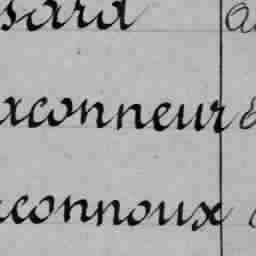 sard
aconneur
connoux